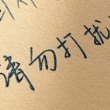 请勿打扰